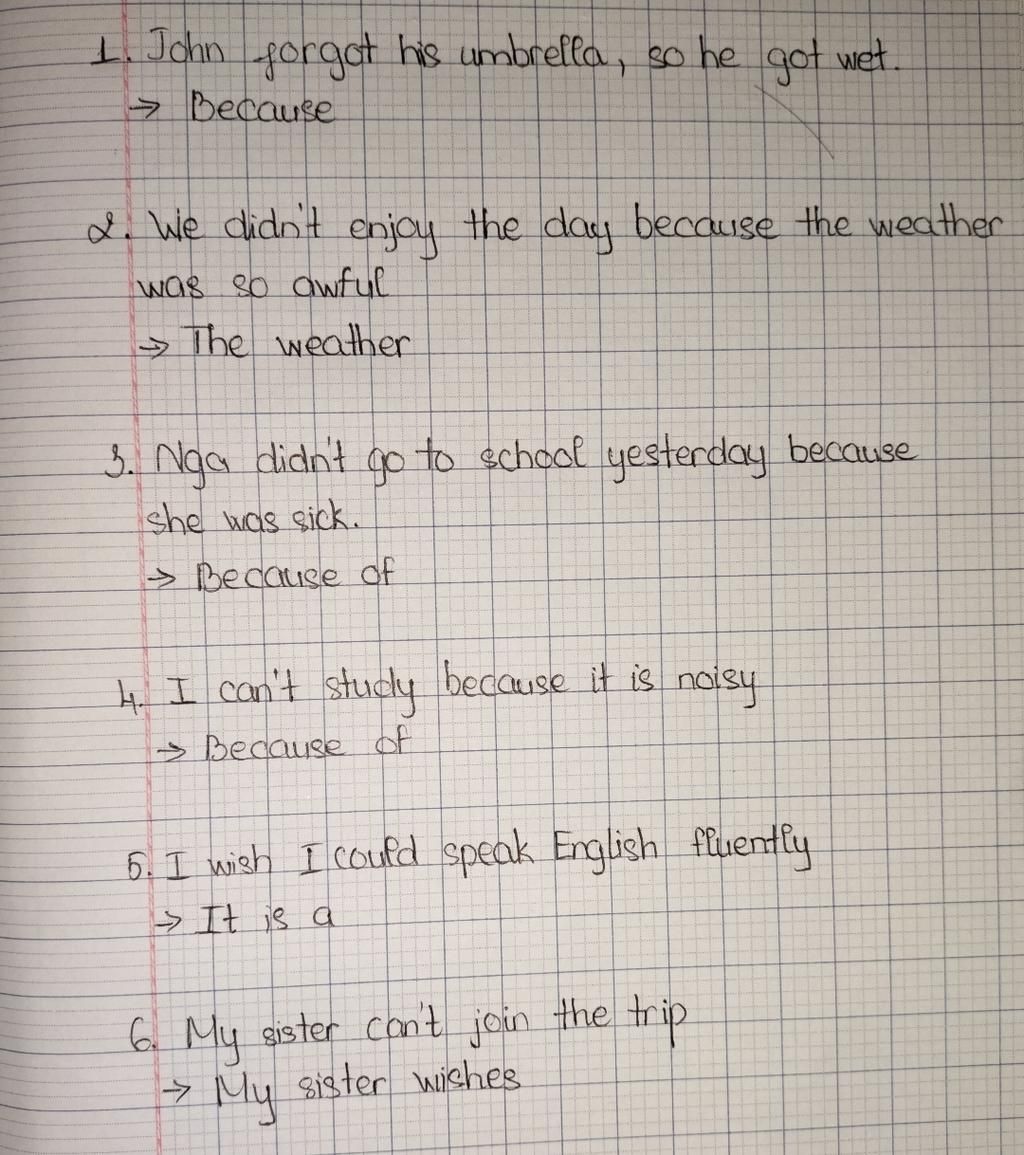 1. John forgot his umbrella, so he got wet.
→ Because
2. We didn't enjoy the day because the weather
was so awful
→ The weather
3. Nga didn't go to school yesterday because
she was sick.
→ Because of
4. I can't study because it is noisy
→ Because of
5. I wish I could speak English fluently
→ It is a
6. My sister can't join the trip
→ My sister wishes